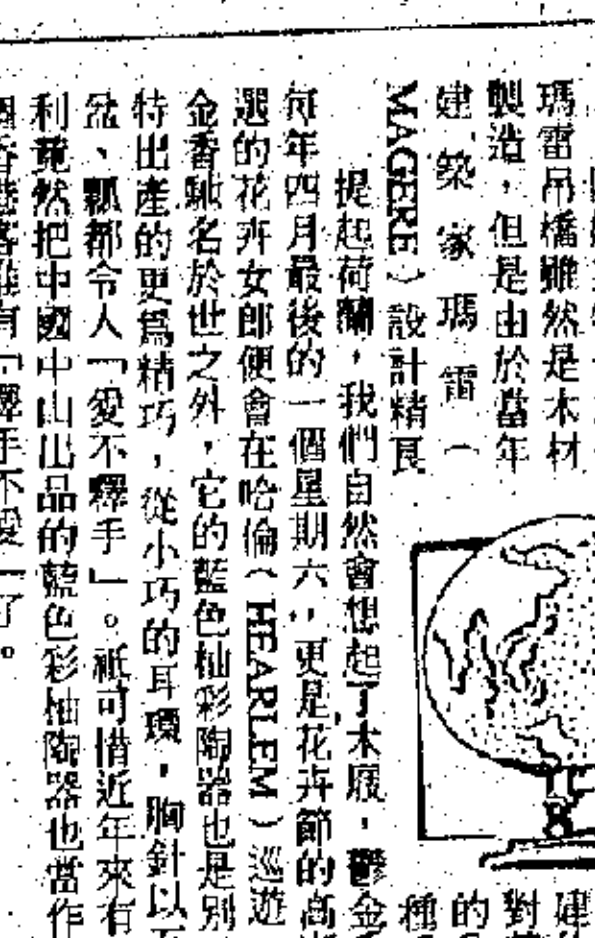 瑪雷吊橋雖然是木材
製造，但是由於當年
建築家瑪雷（
MAGERE）設計精良
提起荷蘭，我們自然會想起了木屐，鬱金
每年四月最後的一個星期六，更是花卉節的高
選的花卉女郎便會在哈倫（HEARLEM）巡遊
金香馳名於世之外，它的藍色柚彩陶器也是別
特出產的更爲精巧，從小巧的耳環，胸針以
盆、瓢都令人「愛不釋手」。祇可惜近年來有
利竟然把中國中山出品的藍色彩柚陶器也當作
有「釋手不愛」了。
建
對
的
種